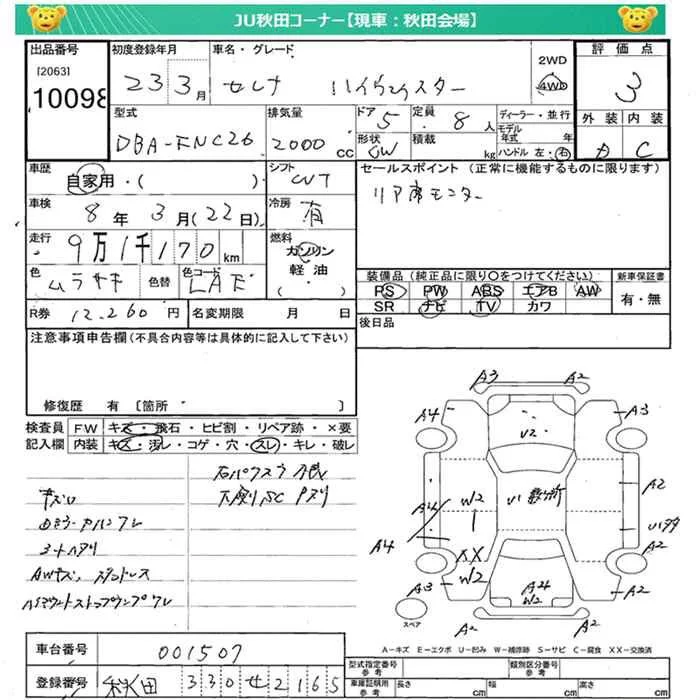 JU秋田コーナー【現車：秋田会場】
出品番号
[2063]
10098
初度登録年月
23 3月
車名・グレード
セレナ ハイウェイスター
2WD
4WD
評価点
3
外装 内装
A C
型式
DBA-FNC26
排気量
2000 cc
ドア
5
形状
CW
定員
8人
積載
kg
ディーラー・並行
モデル年式 年
ハンドル 左・右
車歴
自家用・( )
シフト
CVT
セールスポイント（正常に機能するものに限ります）
リア席モニター
車検
8年 3月(22日)
冷房
有
走行
9万1千170km
燃料
ガソリン
軽油
・( )
色
ムラサキ
色替
色コード
LAE
装備品（純正品に限り○をつけてください）
PS PW ABS エアB AW
SR ナビ TV カワ
新車保証書
有・無
R券 12,260円
名変期限 月 日
後日品
注意事項申告欄(不具合内容等は具体的に記入して下さい)
修復歴 有 [箇所 ]
検査員記入欄
FW キズ・飛石・ヒビ割・リペア跡・×要
内装 キズ・汚レ・コゲ・穴・スレ・キレ・破レ
シートヘタリ
A3 A2
A4 A3
V2
A2
W2
U1
A4
XX
W2
A2
A3
A4
W2
A2 A2
スペア
A-キズ E-エクボ U-凹み W-補修跡 S-サビ C-腐食 XX-交換済
車台番号 001507
登録番号 秋田 330 セ 2165
型式指定番号
参考
類別区分番号
参考
車庫証明用
参考
長さ cm
幅 cm
高さ cm